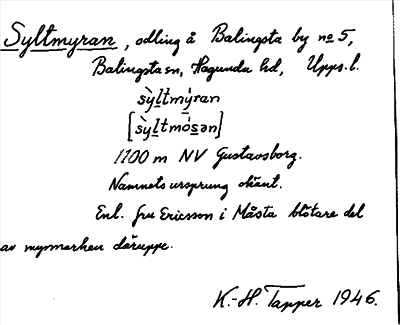 Syltmyran, odling å Balingsta by no 5,
Balingsta sn, Hagunda hd, Upps. l.
sỳltmýran
[sỳltmósən]
1100 m NV Gustavsborg.
Namnets ursprung okänt.
Enl. fru Ericsson i Måsta blötare del
av myrmarken däruppe.
K.-H. Tapper 1946.